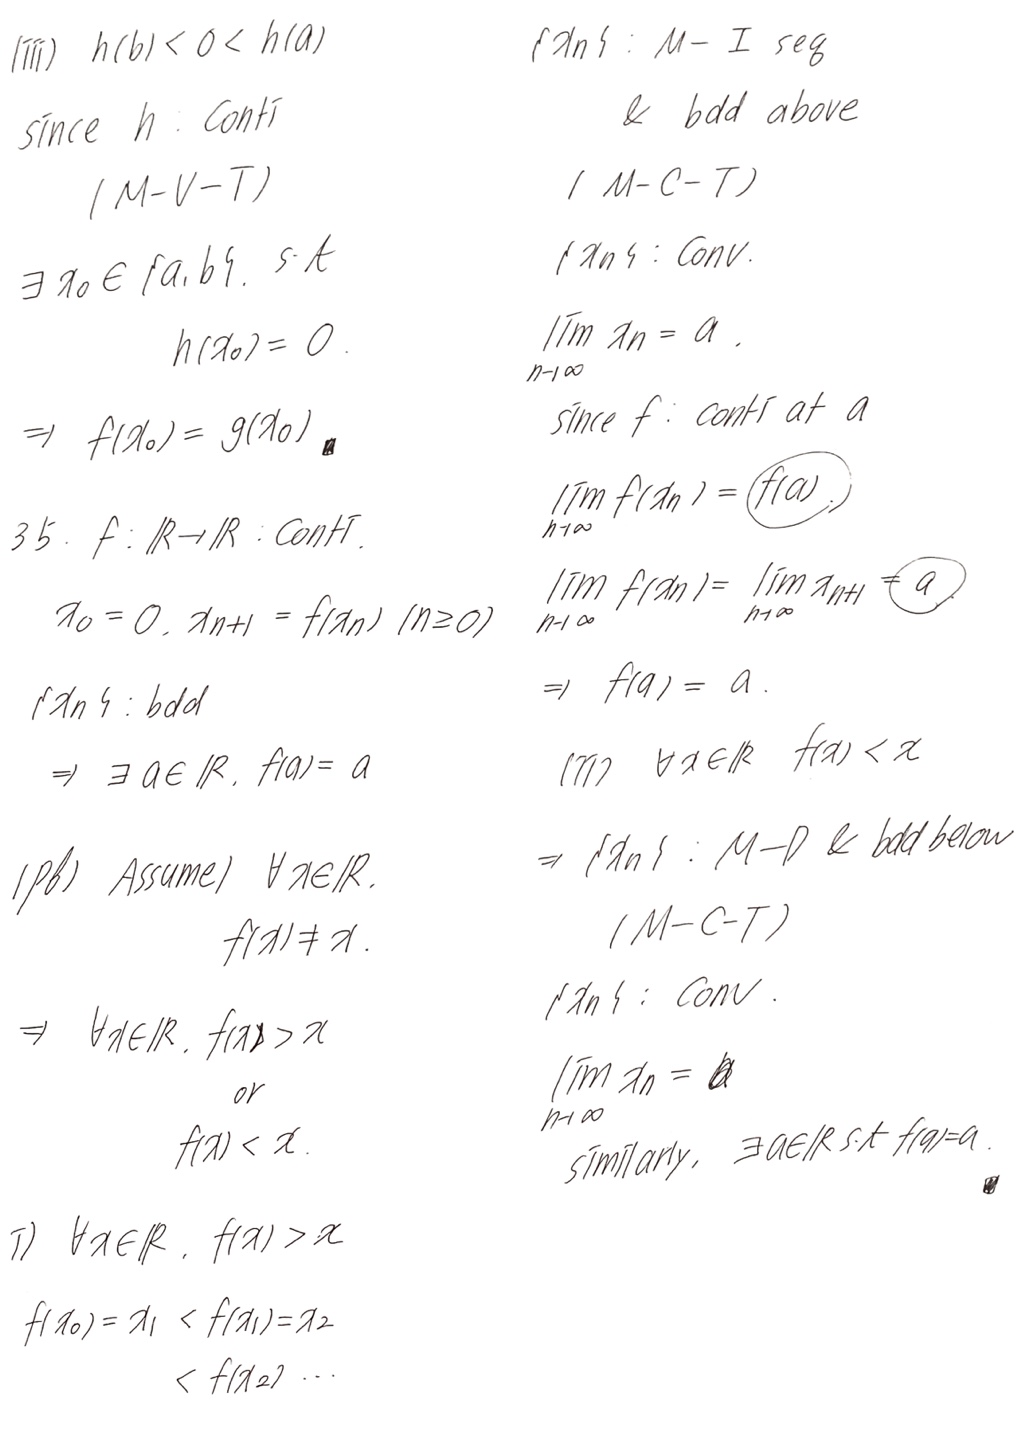 (iii) h(b) < 0 < h(a)
since h : Conti
(M-V-T)
∃ x₀ ∈ {a, b}. s.t
h(x₀) = 0.
⇒ f(x₀) = g(x₀) ∎
35. f : ℝ → ℝ : Conti.
x₀ = 0. xₙ₊₁ = f(xₙ) (n ≥ 0)
{xₙ} : bdd
⇒ ∃ a ∈ ℝ. f(a) = a
(pf) Assume) ∀x∈ℝ.
f(x) ≠ x.
⇒ ∀x∈ℝ. f(x) > x
or
f(x) < x.
i) ∀x∈ℝ. f(x) > x
f(x₀) = x₁ < f(x₁) = x₂
< f(x₂) ⋯
{xₙ} : M-I seq
& bdd above
(M-C-T)
{xₙ} : Conv.
lim xₙ = a.
n→∞
since f : conti at a
lim f(xₙ) = f(a).
n→∞
lim f(xₙ) = lim xₙ₊₁ = a.
n→∞ n→∞
⇒ f(a) = a.
(ii) ∀x∈ℝ f(x) < x
⇒ {xₙ} : M-D & bdd below
(M-C-T)
{xₙ} : Conv.
lim xₙ =
n→∞
similarly, ∃a∈ℝ s.t f(a)=a.
∎